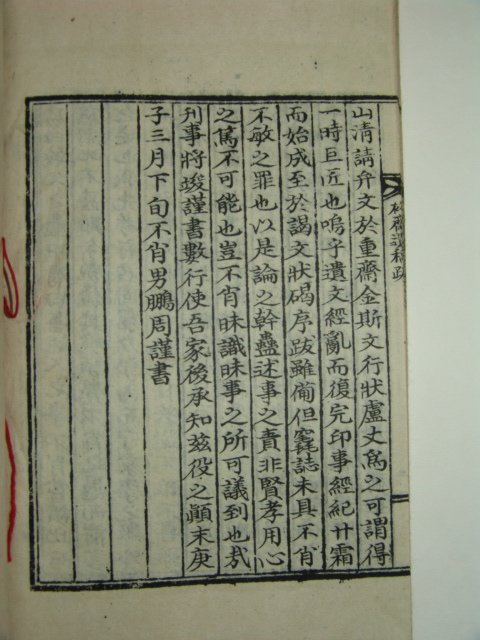 山淸請弁文於重齋金斯文行狀盧丈爲之可謂得
一時巨匠也嗚乎遺文經亂而復完印事經紀廿霜
而始成至於謁文狀碣序跋雖備但竁誌未具不肖
不敏之罪也以是論之幹蠱述事之責非賢孝用心
之篤不可能也豈不肖昧識昧事之所可議到也哉
刊事將竣謹書數行使吾家後承知玆役之顚末庚
子三月下旬不肖男鵬周謹書